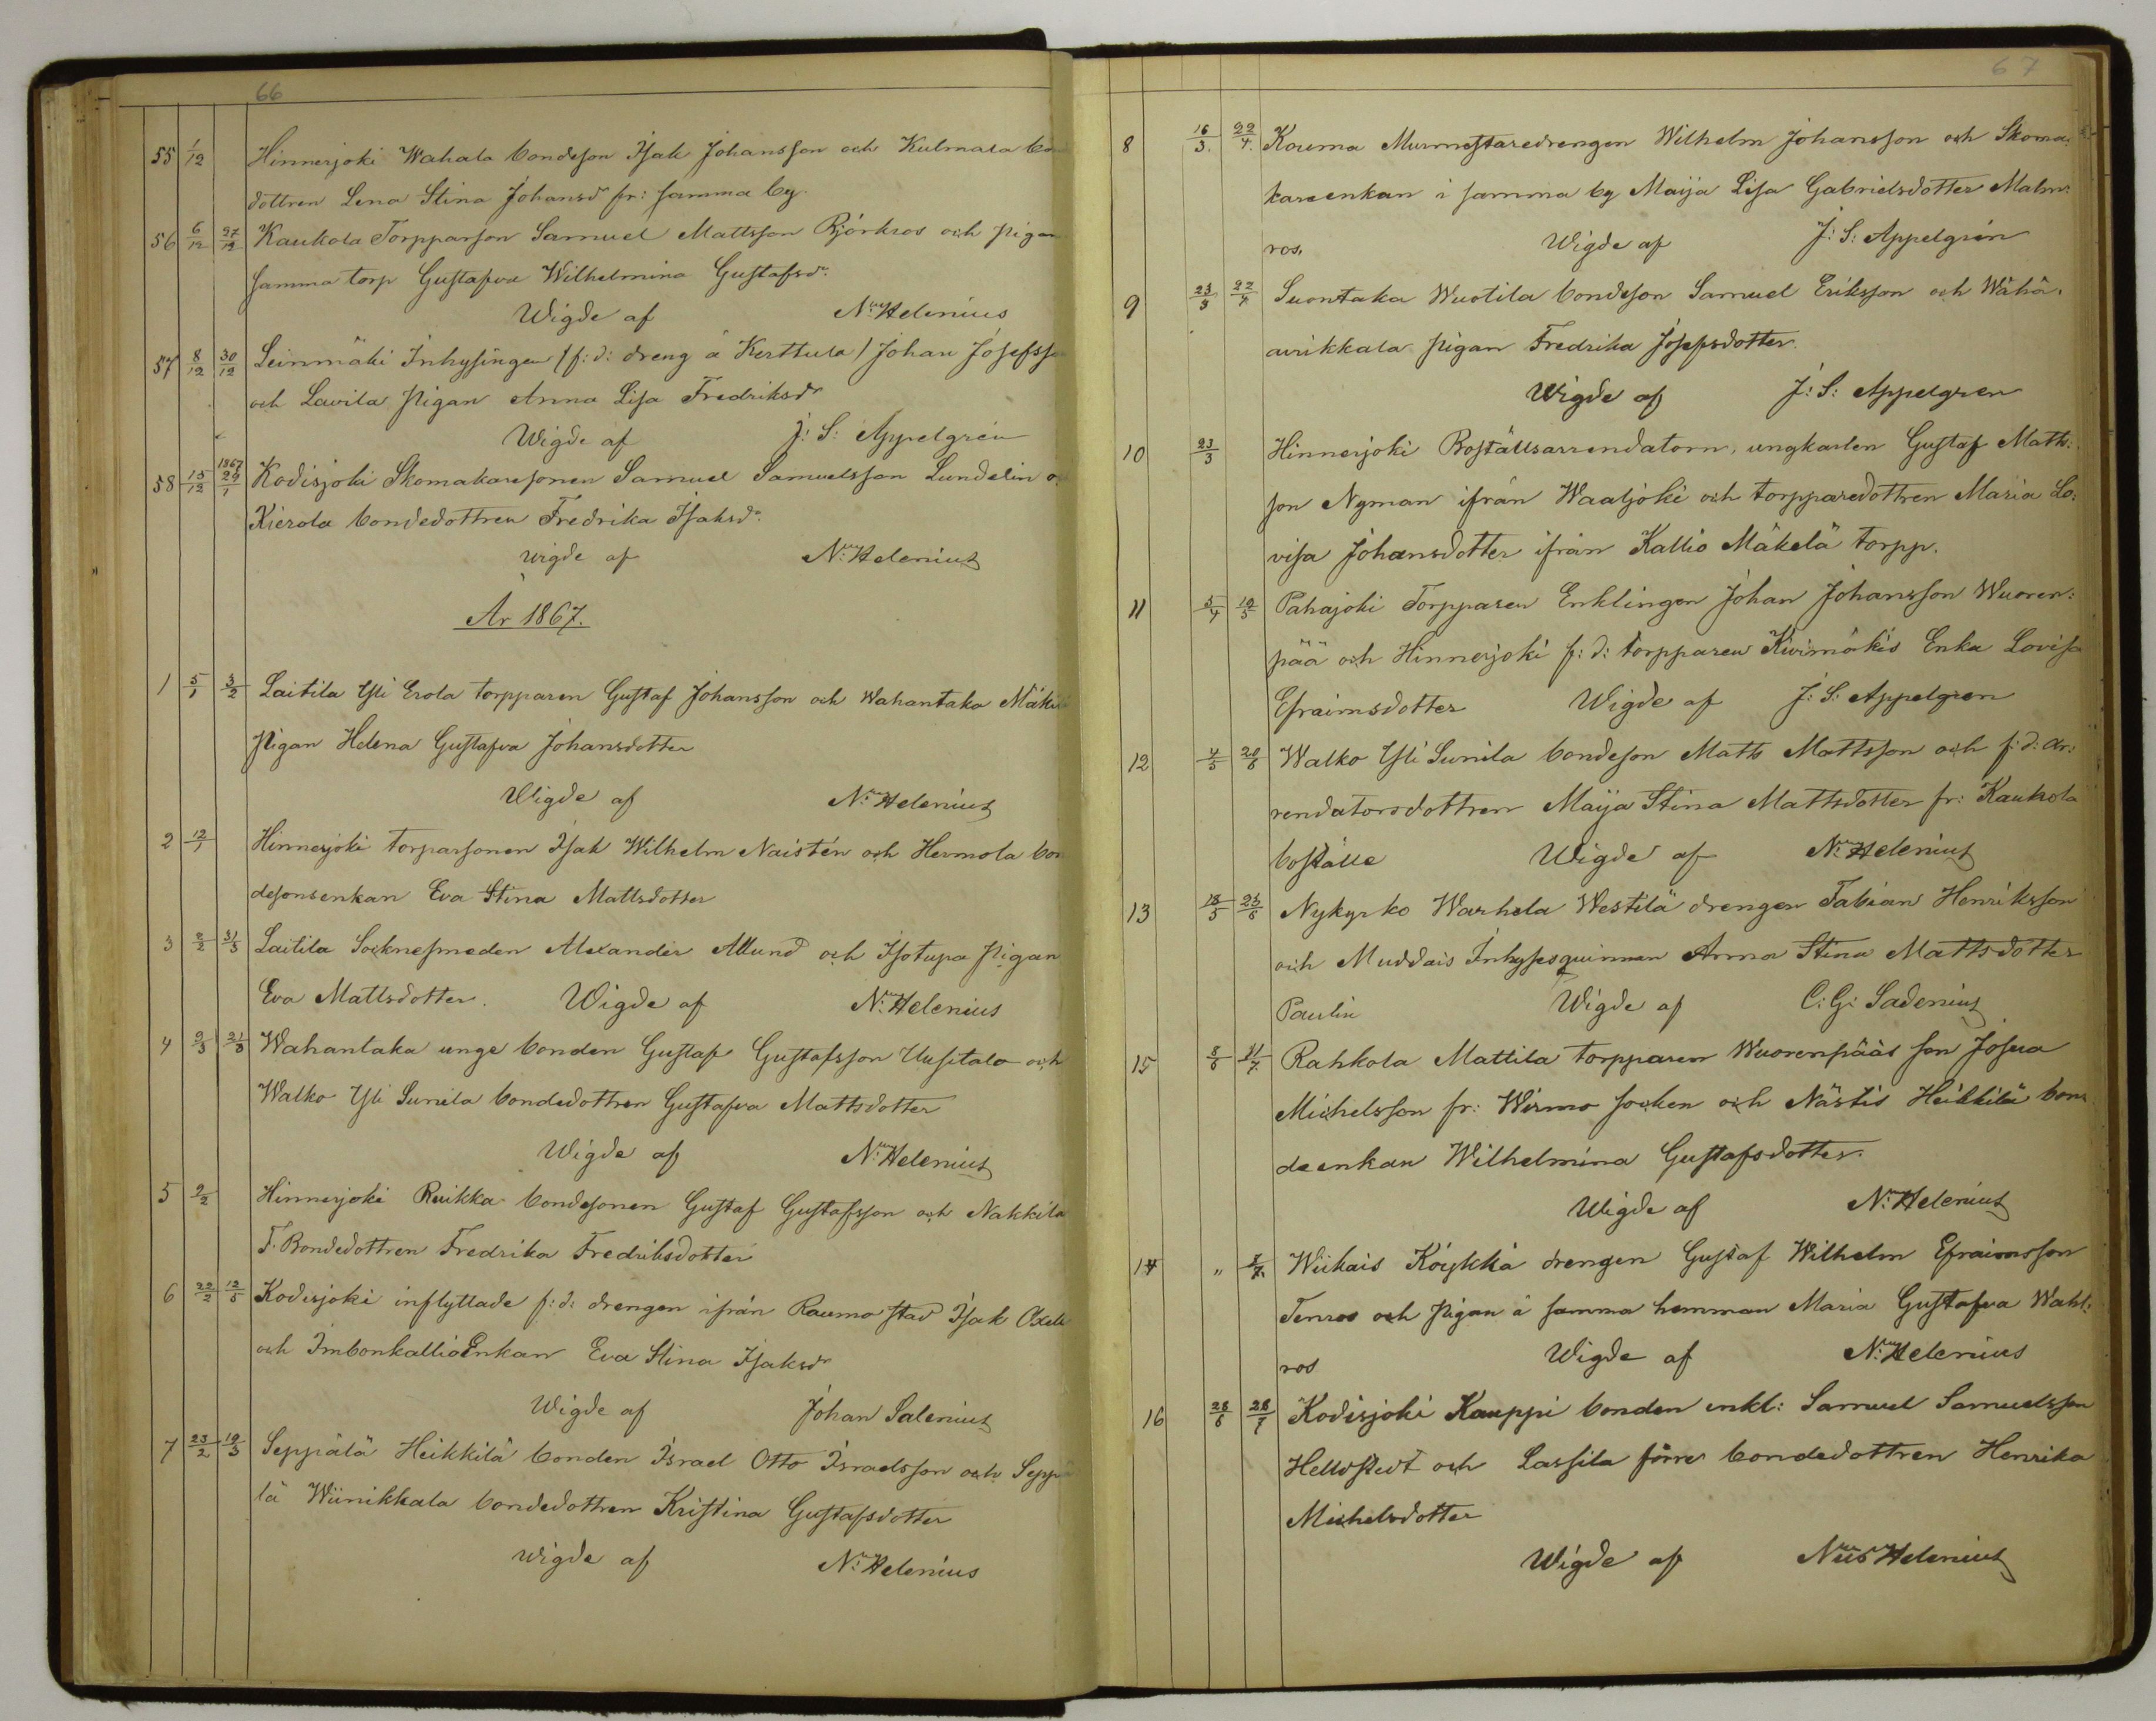 66
55 1/12 Hinnerjoki Wahala bondeson Isak Johansson och Kulmala
dottren Lena Stina Johansdr fr: samma by.
56 6/12 27/12 Kaukola Torpparson Samuel Mattsson Björkros och pigan
samma torp Gustafva Wilhelmina Gustafsdr
Wigde af N: Helenius
57 8/12 30/12 Leinmäki Inhysingen /f: d: dreng å Kerttula/ Johan Josefsson
och Lavila Pigan Anna Lisa Fredriksdr
Wigde af J: S: Appelgrén
58 15/12 1867 29/1 Kodisjoki Skomakaresonen Samuel Samuelsson Lundelin
Kierola bondedottren Fredrika Isaksdr
wigde af N: Helenius
År 1867.
1 5/1 3/2 Laitila Yli Erola torpparen Gustaf Johansson och Wahantaka
Pigan Helena Gustafva Johansdotter
Wigde af N: Helenius
2 12/1 Hinnerjoki torparsonen Isak Wilhelm Naistén och Hermola bon
desonsenkan Eva Stina Mattsdotter
3 2/2 31/3 Laitila Socknesmeden Alexander Allund och Isotupa Pigan
Eva Mattsdotter. Wigde af N: Helenius
4 9/3 21/3 Wahantaka unge bonden Gustaf Gustafsson Uusitalo och
Walko Yli Sunila bondedottren Gustafva Mattsdotter
Wigde af N: Helenius
5 9/2 Hinnerjoki Ruikka bondesonen Gustaf Gustafsson och Nakkila
F. Bondedottren Fredrika Fredriksdotter
6 22/2 12/5 Kodisjoki inflyttade f: d: drengen ifrån Raumo stad Isak
och Imbonkallio Enkan Eva Stina Isaksdr
Wigde af Johan Salenius
7 23/2 19/3 Seppälä Heikkilä bonden Israel Otto Israelsson och Seppä
lä Wiinikkala bondedottren Kristina Gustafsdotter
wigde af N: Helenius
67
8 16/3. 22/4. Kouma Murmestaredrengen Wilhelm Johansson och Skoma:
kareenkan i samma by Maija Lisa Gabrielsdotter Malm:
ros. Wigde af J: S: Appelgrén
9 23/3 22/4 Suontaka Wuotila bondeson Samuel Eriksson och Wähä:
airikkala pigan Fredrika Josepsdotter.
Wigde af J: S: Appelgren
10 23/3 Hinnerjoki Boställsarrendatorn, ungkarlen Gustaf Matts:
son Nyman ifrån Waaljoki och torpparedottren Maria Lo:
visa Johansdotter ifrån Kallio Mäkelä torpp.
11 5/4 19/5 Pahajoki Torpparen Enklingen Johan Johansson Wuoren:
pää och Hinnerjoki f: d: torpparen Kivimäkis Enka Lovisa
Efraimsdotter Wigde af J: S: Appelgren
12 4/5 20/6 Walko Yli Sunila bondeson Matts Mattsson och f: d: ar:
rendatorsdottren Maija Stina Mattsdotter fr: Kaukola
boställe Wigde af N: Helenius
13 18/5 23/6 Nykyrko Warhela Westilä drengen Fabian Henriksson
och Muddais Inhysesquinnan Anna Stina Mattsdotter
Paulin Wigde af C: G: Sadenius
15 8/6 11/7. Rahkola Mattila torpparen Wuorenpääs son Josua
Michelsson fr: Wirmo socken och Nästis Heikkilä bon:
deenkan Wilhelmina Gustafsdotter.
Wigde af N: Helenius
14 " 7/7. Wiikais Köykkä drengen Gustaf Wilhelm Efraimsson
Tenros och Pigan å samma hemman Maria Gustafva Wahl:
ros Wigde af N: Helenius
16 28/6 28/7 Kodisjoki Kauppi bonden enkl: Samuel Samuelsson
Hellstedt och Lassila förre bondedottren Henrika
Michelsdotter
Wigde af Niis Helenius